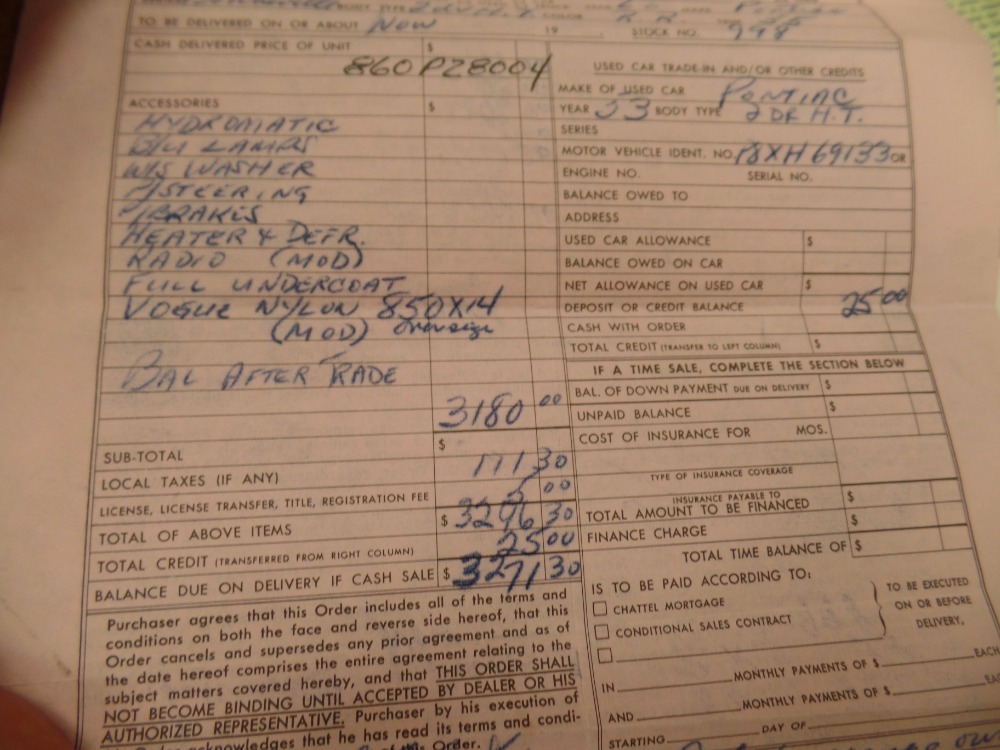 BODY TYPE
TO BE DELIVERED ON OR ABOUT Now 19 STOCK NO. 998
CASH DELIVERED PRICE OF UNIT $
860P28004
ACCESSORIES $
HYDROMATIC
B/U LAMPS
W/S WASHER
P/STEERING
P/BRAKES
HEATER & DEFR.
RADIO (MOD)
FULL UNDERCOAT
VOGUE NYLON 850X14
(MOD) oversize
BAL AFTER TRADE
3180 00
SUB-TOTAL $
LOCAL TAXES (IF ANY) 30
LICENSE, LICENSE TRANSFER, TITLE, REGISTRATION FEE 5 00
TOTAL OF ABOVE ITEMS $ 3296 30
TOTAL CREDIT (TRANSFERRED FROM RIGHT COLUMN) 25 00
BALANCE DUE ON DELIVERY IF CASH SALE $ 3271 30
Purchaser agrees that this Order includes all of the terms and
conditions on both the face and reverse side hereof, that this
Order cancels and supersedes any prior agreement and as of
the date hereof comprises the entire agreement relating to the
subject matters covered hereby, and that THIS ORDER SHALL
NOT BECOME BINDING UNTIL ACCEPTED BY DEALER OR HIS
AUTHORIZED REPRESENTATIVE. Purchaser by his execution of
acknowledges that he has read its terms and condi-
Order.
USED CAR TRADE-IN AND/OR OTHER CREDITS
MAKE OF USED CAR PONTIAC
YEAR 53 BODY TYPE 2 DR H.T.
SERIES
MOTOR VEHICLE IDENT. NO. P8XH69133 OR
ENGINE NO. SERIAL NO.
BALANCE OWED TO
ADDRESS
USED CAR ALLOWANCE $
BALANCE OWED ON CAR
NET ALLOWANCE ON USED CAR $
DEPOSIT OR CREDIT BALANCE 25 00
CASH WITH ORDER
TOTAL CREDIT (TRANSFER TO LEFT COLUMN) $
IF A TIME SALE, COMPLETE THE SECTION BELOW
BAL. OF DOWN PAYMENT DUE ON DELIVERY $
UNPAID BALANCE $
COST OF INSURANCE FOR MOS.
TYPE OF INSURANCE COVERAGE
INSURANCE PAYABLE TO
TOTAL AMOUNT TO BE FINANCED $
FINANCE CHARGE $
TOTAL TIME BALANCE OF $
IS TO BE PAID ACCORDING TO:
CHATTEL MORTGAGE
CONDITIONAL SALES CONTRACT
TO BE EXECUTED
ON OR BEFORE
DELIVERY,
IN MONTHLY PAYMENTS OF $ EACH
AND MONTHLY PAYMENTS OF $
STARTING DAY OF